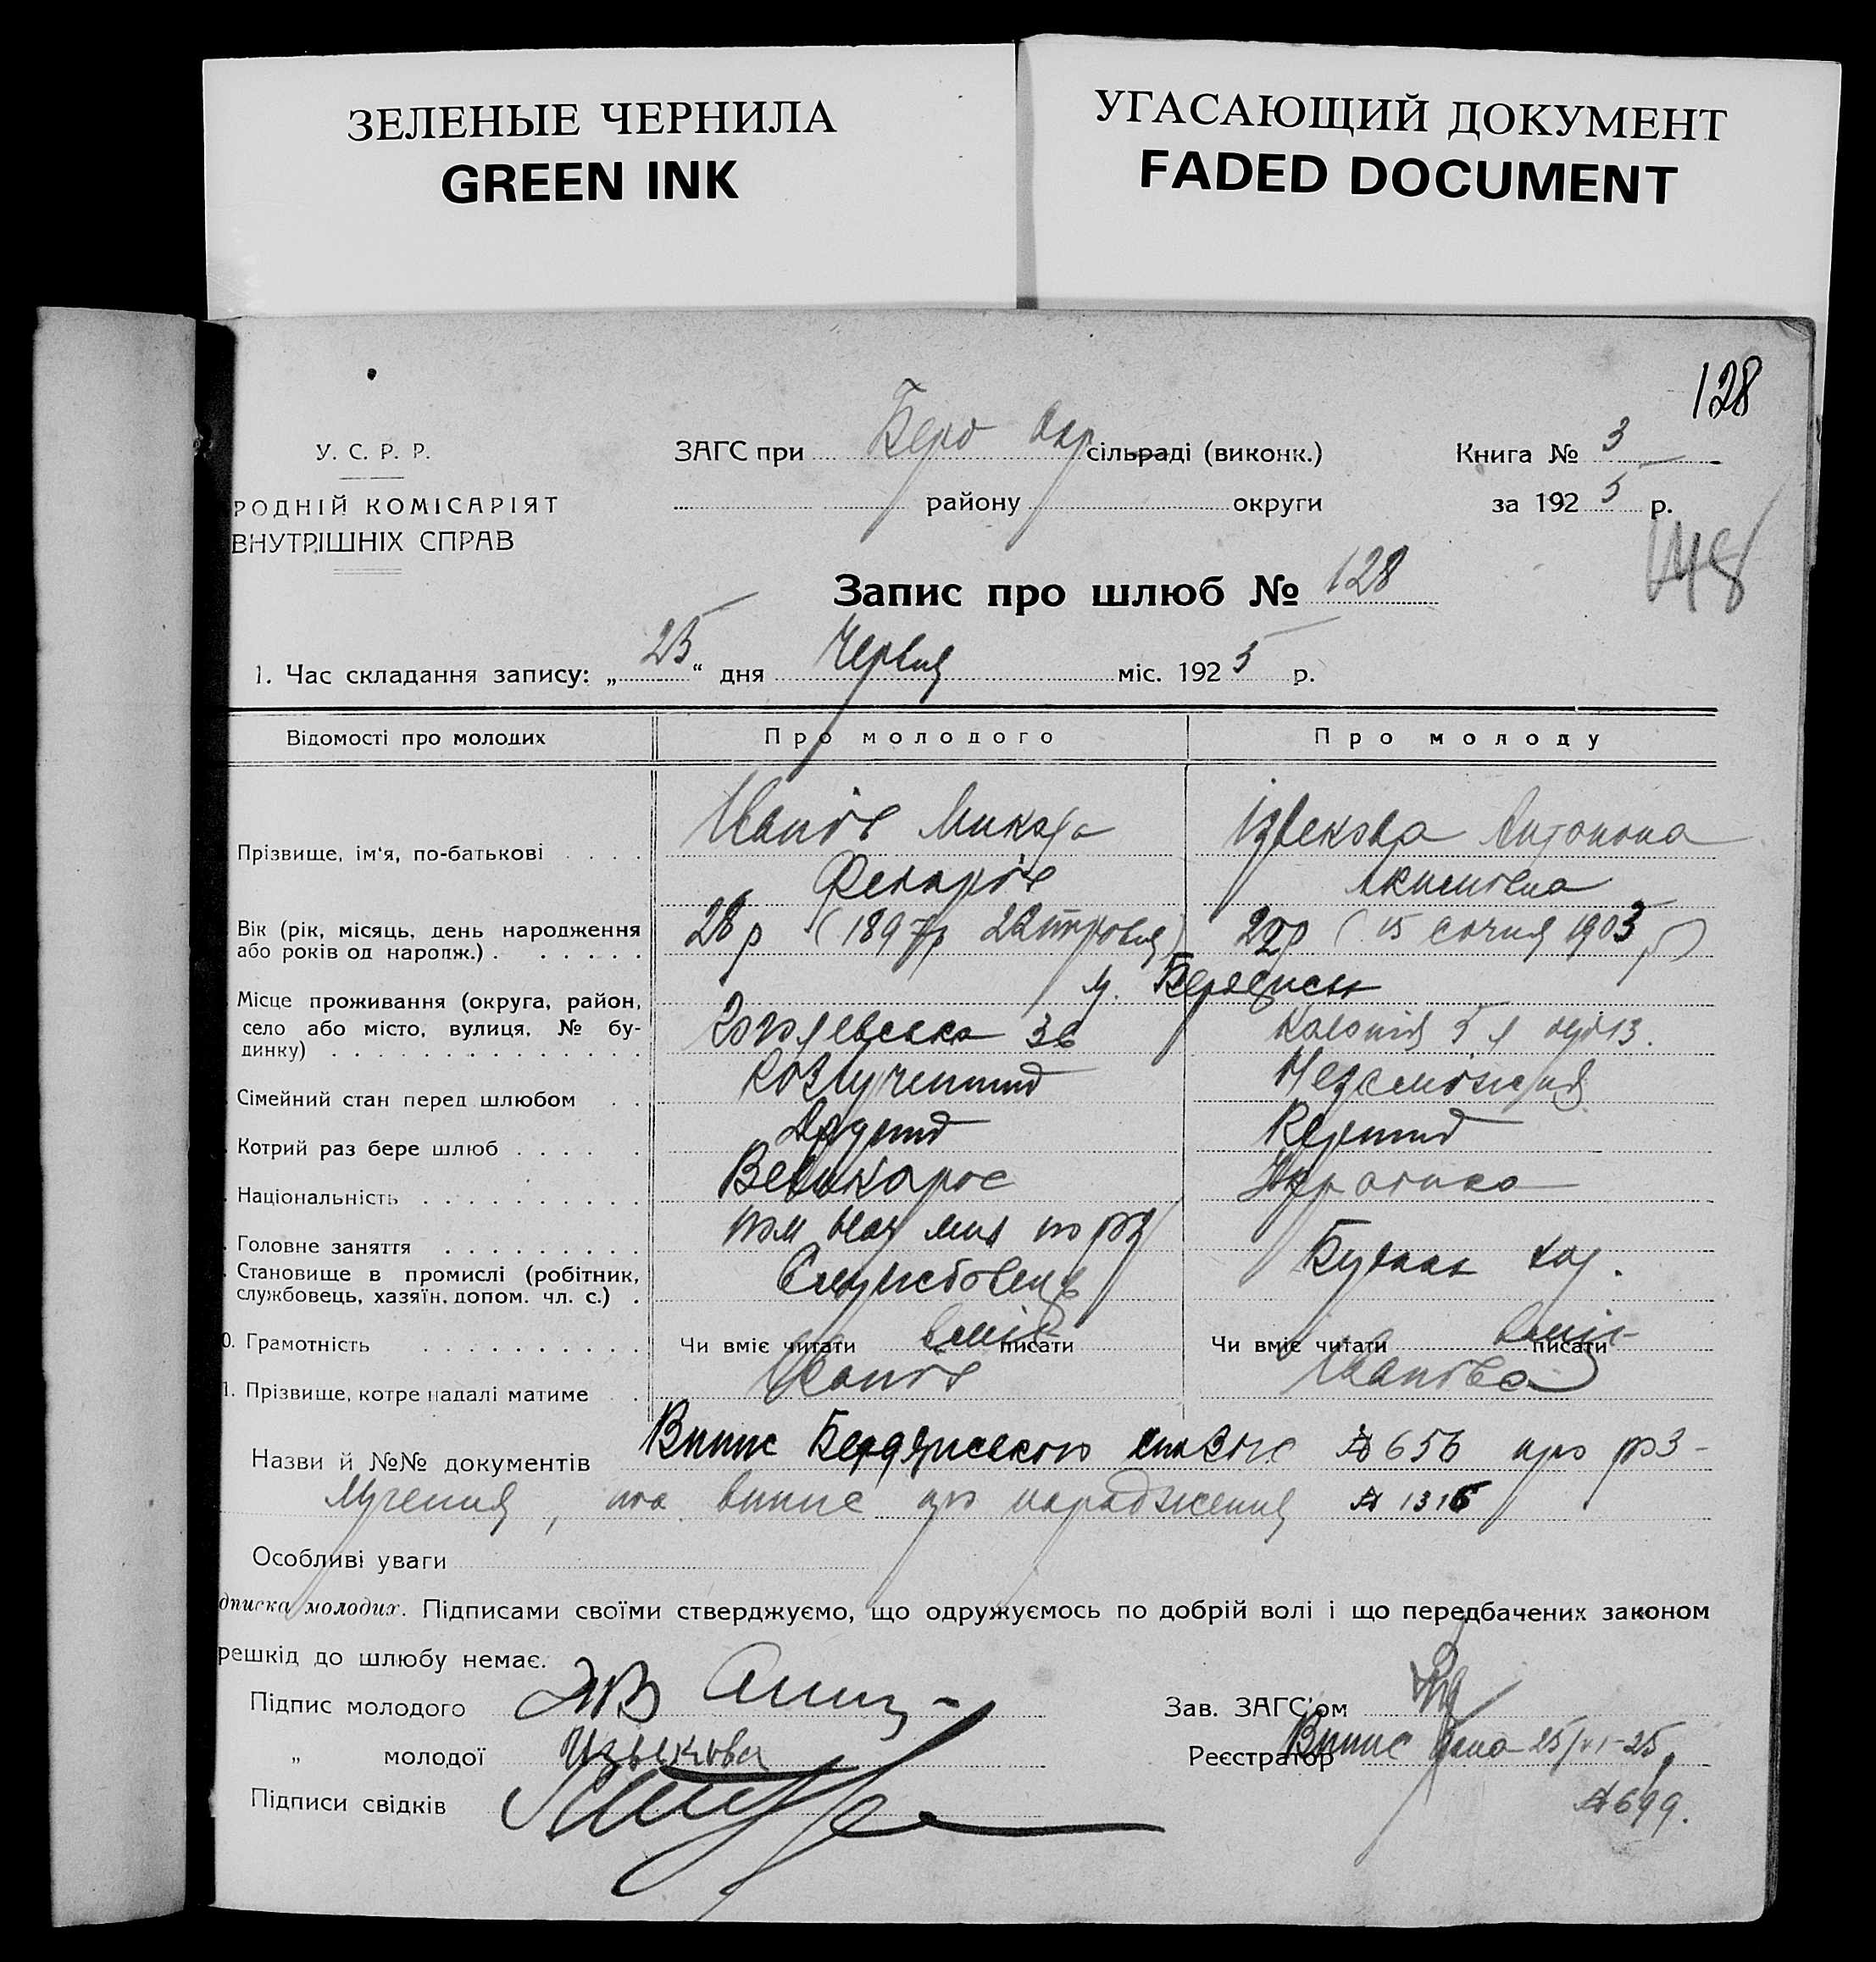 ЗЕЛЕНЫЕ ЧЕРНИЛА
GREEN INK
УГАСАЮЩИЙ ДОКУМЕНТ
FADED DOCUMENT
128
У. С. Р. Р.
РОДНІЙ КОМІСАРІЯТ
ВНУТРІШНІХ СПРАВ
ЗАГС при Берд Окр сільраді (виконк.)
району округи
Книга № 3
за 1925 р.
148
Запис про шлюб № 128
1. Час складання запису: „25“ дня Червня міс. 1925 р.
Відомості про молодих Про молодого Про молоду
Прізвище, ім'я, по-батькові Іванів Микола Ізвекова Антонина
Акимовна
Вік (рік, місяць, день народження
або років од народж.) 28 р (1897р 22 22р (15 сочня 1903 р)
м. Бердянськ
Місце проживання (округа, район,
село або місто, вулиця, № бу-
динку) Гоголевська 36 Колонія 5 л 13.
Сімейний стан перед шлюбом Розлучений
Котрий раз бере шлюб Другий Первий
Національність Великорос Українка
Головне заняття пом нач
Становище в промислі (робітник,
службовець, хазяїн, допом. чл. с.) Службовець
0. Грамотність Чи вміє читати вміє писати Чи вміє читати вміє писати
1. Прізвище, котре надалі матиме Іванів Іванова
Назви й №№ документів Випис Бердянського ЗАГС № 656 про роз-
лучення, та випис про народження № 1316
Особливі уваги
дписка молодих. Підписами своїми стверджуємо, що одружуємось по добрій волі і що передбачених законом
решкід до шлюбу немає.
Підпис молодого
Зав. ЗАГС'ом
„ молодої Извекова
Реєстратор Випис дано 25/VI-25
Підписи свідків
№ 699.